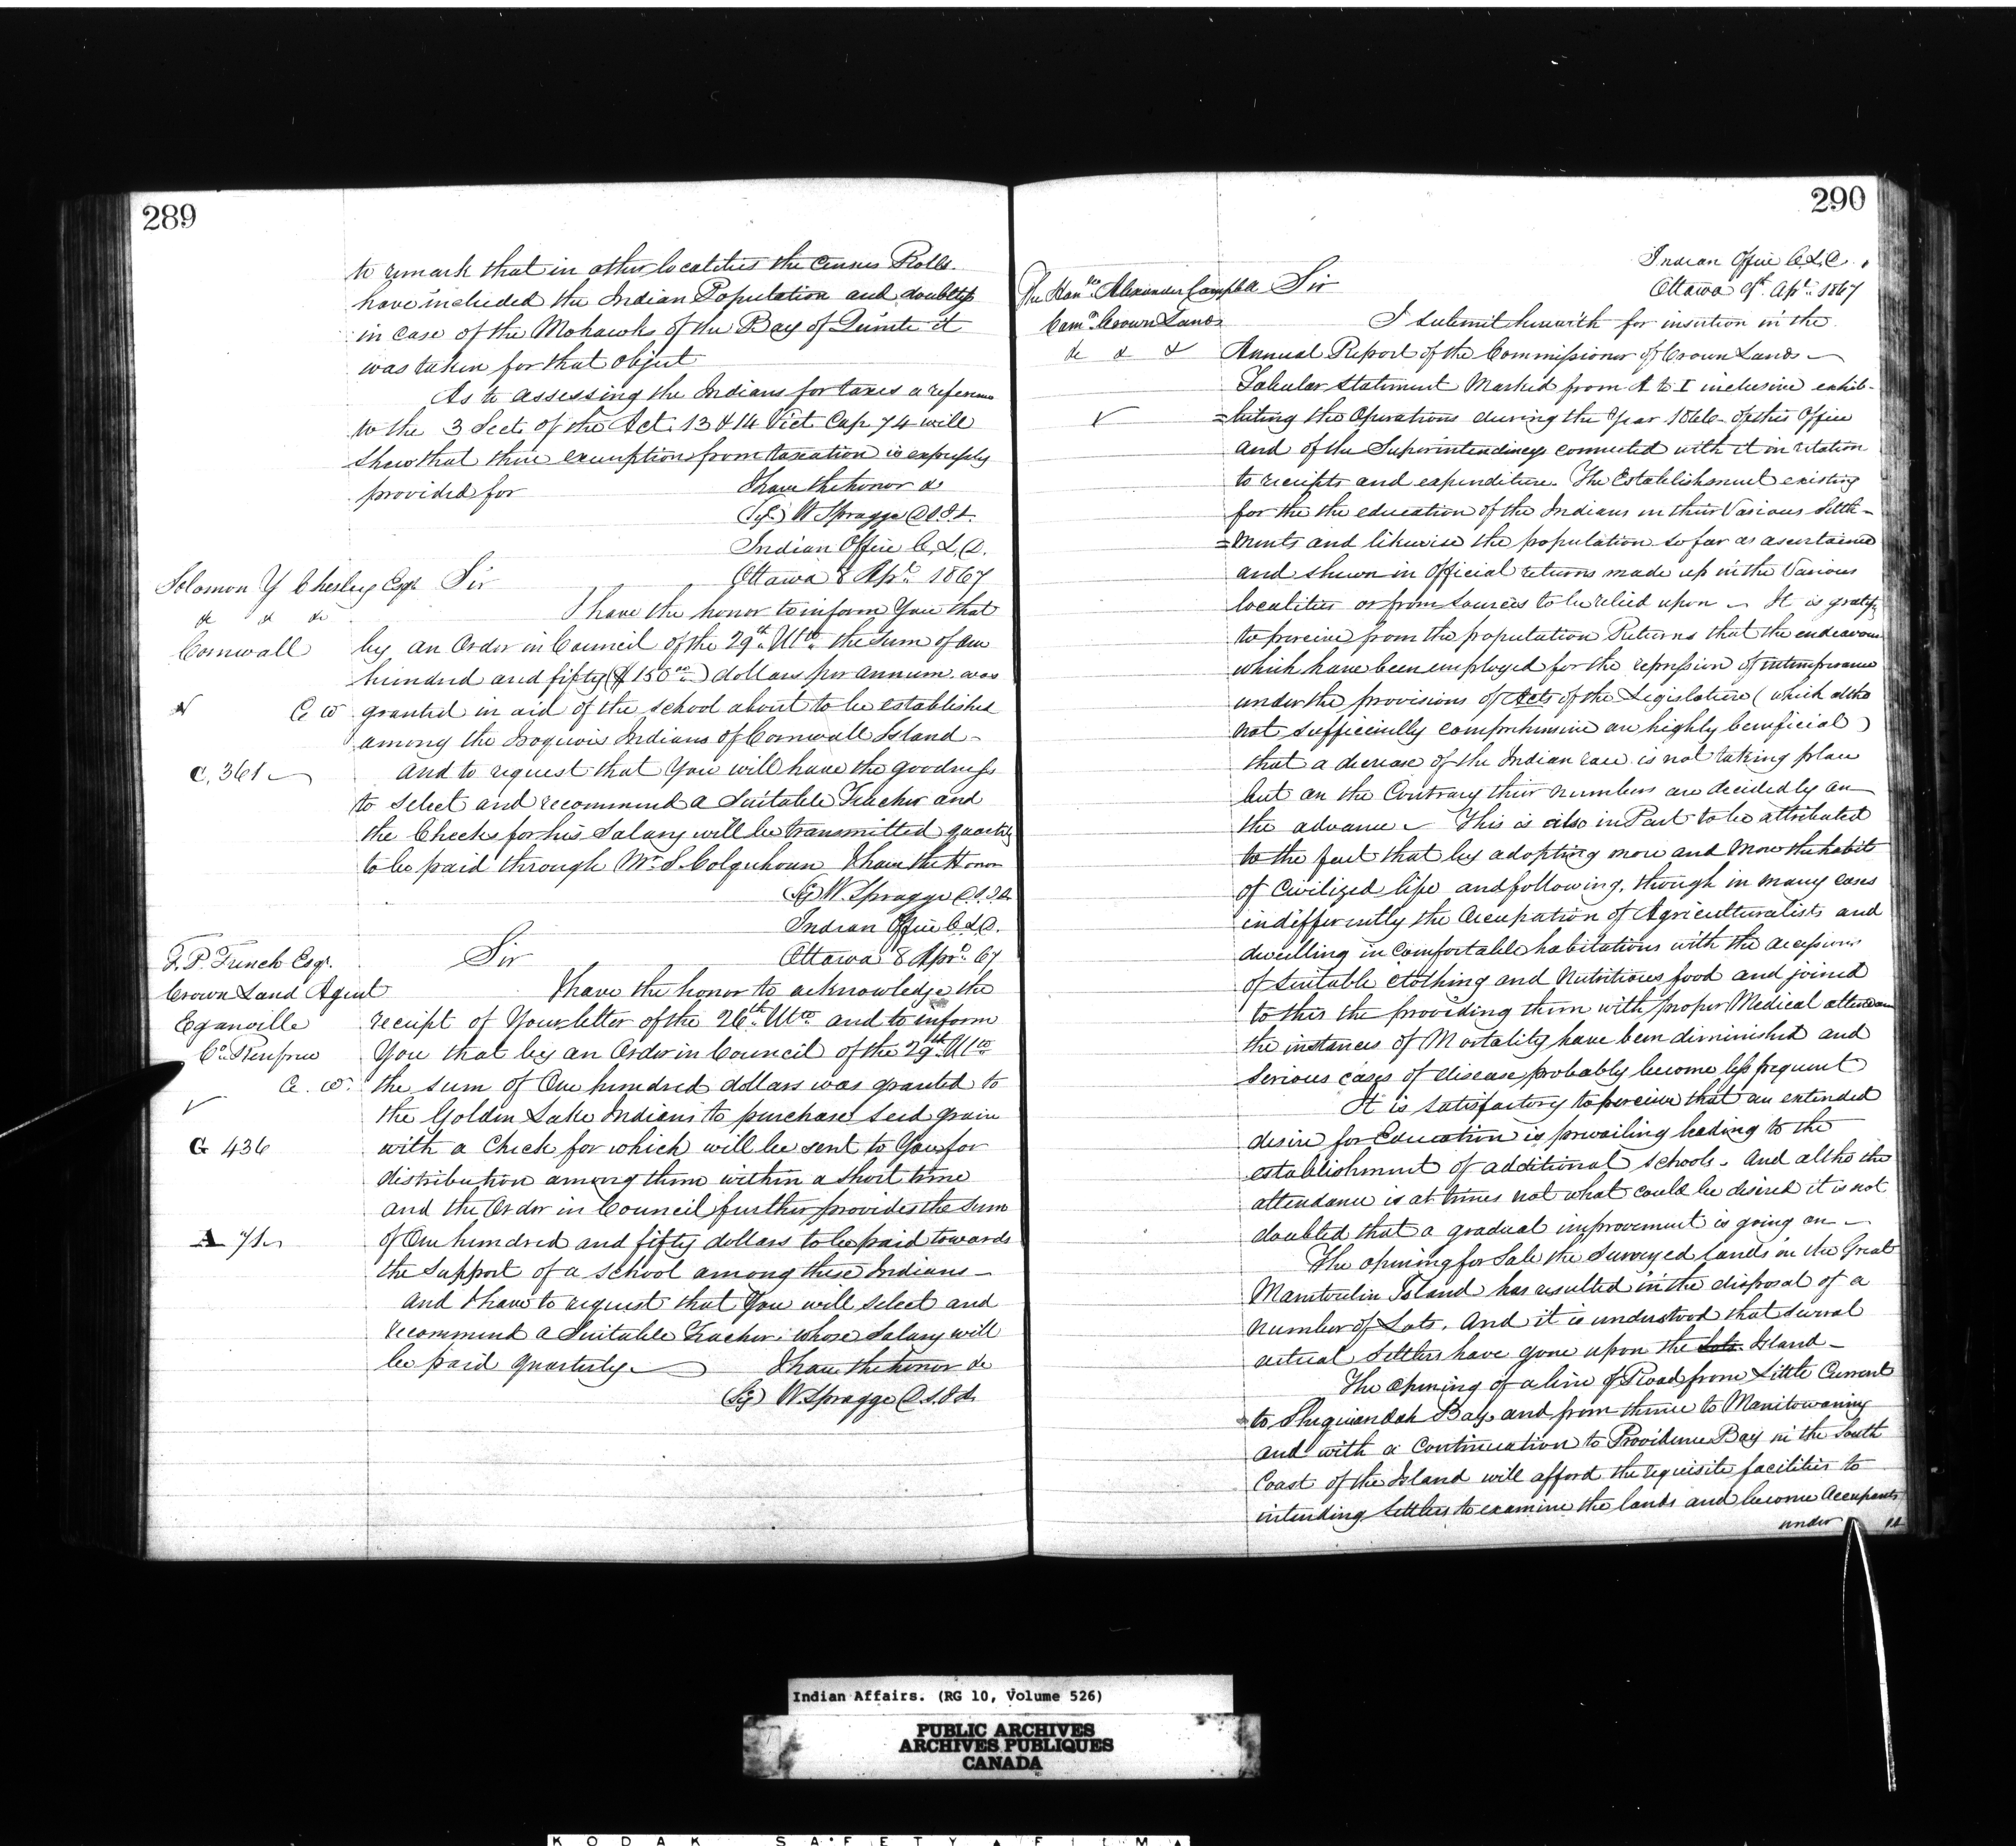 289
to remark that in other localities the Census Rolls
have included the Indian Population and doubtless
in case of the Mohawks of the Bay of Quinte it
was taken for that object
As to assessing the Indians for taxes a reference
to the 3 Sect. of the Act. 13 & 14 Vict Cap 74 will
shew that their exemption from taxation is expressly
provided for I have the honor &c
(Sg) W Spragge D.S.I.A.
Indian Office C.L.D.
Solomon Y Chesley Esqr Sir Ottawa 8 Apl. 1867
&c &c &c I have the honor to inform You that
Cornwall by an Order in Council of the 29th Ulto. the sum of one
hundred and fifty ($150.00) dollars per annum was
C W granted in aid of the school about to be established
among the Iroquois Indians of Cornwall Island –
C. 361 and to request that You will have the goodness
to select and recommend a Suitable Teacher and
the Checks for his Salary will be transmitted quarterly
to be paid through Mr. S. Colquhoun I have the Honor
(Sg) W. Spragge D.S.I.A.
Indian Office C.L.D.
Sir Ottawa 8 Apr. 67
T. P. French Esqr.
Crown Land Agent I have the honor to acknowledge the
Eganville receipt of Your letter of the 26th. Ulto. and to inform
Co. Renfrew You that by an Order in Council of the 29th Ulto
C. W. the sum of One hundred dollars was granted to
the Golden Lake Indians to purchase seed grain
G 436 with a Check for which will be sent to You for
distribution among them within a short time
and the Order in Council further provides the sum
A 71 of One hundred and fifty dollars to be paid towards
the support of a school among these Indians –
and I have to request that You will select and
recommend a Suitable Teacher whose Salary will
be paid quarterly – I have the honor &c
(Sg) W. Spragge D.S.I.A.
290
Indian Office C.L.D.
The Honble Alexander Campbell Sir Ottawa 9th. Apl. 1867
Comr. Crown Lands I submit herewith for insertion in the
&c & & Annual Report of the Commissioner of Crown Lands –
Tabular Statement Marked from A to I inclusive exhib-
=biting the Operations during the Year 1866 of this Office
and of the Superintendencys connected with it in relation
to receipts and expenditure. The Establishment existing
for the the education of the Indians in their Various Settle-
=ments and likewise the population so far as ascertained
and shewn in Official returns made up in the Various
localities or from sources to be relied upon – It is gratifg
to perceive from the population Returns that the endeavours
which have been employed for the repression of intemperance
under the provisions of Acts of the Legislature (which altho
not sufficiently comprehensive are highly beneficial)
that a decrease of the Indian race is not taking place
but on the Contrary their numbers are decidedly on
the advance – This is also in Part to be attributed
to the fact that by adopting more and more the habits
of Civilized life and following, though in many cases
indifferently the Occupation of Agriculturalists and
dwelling in comfortable habitations with the accessions
of suitable clothing and Nutritious food and joined
to this the providing them with proper Medical attendance
the instances of Mortality have been diminished and
serious cases of disease probably become less frequent
It is satisfactory to perceive that an extended
desire for Education is prevailing leading to the
establishment of additional schools – And altho the
attendance is at times not what could be desired it is not
doubted that a gradual improvement is going on –
The opening for Sale the Surveyed lands in the Great
Manitoulin Island has resulted in the disposal of a
number of Lots. And it is understood that several
actual settlers have gone upon the Lots Island –
The Opening of a line of Road from Little Current
to Sheguiandah Bay and from thence to Manitowaning
and with a Continuation to Providence Bay in the South
Coast of the Island will afford the requisite facilities to
intending Settlers to examine the lands and become Occupants
under
Indian Affairs. (RG 10, Volume 526)
PUBLIC ARCHIVES
ARCHIVES PUBLIQUES
CANADA
KODAK SAFETY FILM